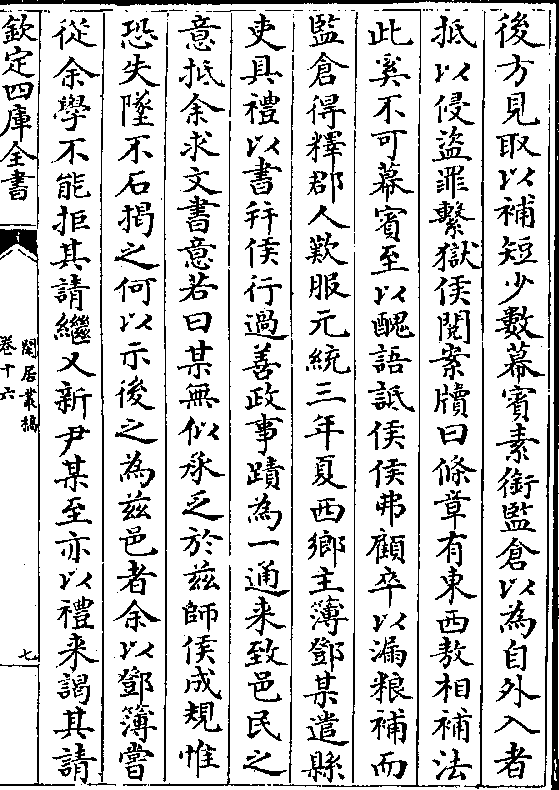 後方見取以補短少數幕賓素銜監倉以為自外入者
抵以侵盜罪繫獄侯閱案牘曰條章有東西敖相補法
此奚不可幕賓至以醜語詆侯侯弗顧卒以漏粮補而
監倉得釋郡人歎服元統三年夏西鄉主簿鄧某遣縣
吏具禮以書并侯行過善政事蹟為一通来致邑民之
意抵余求文書意若曰某無似承乏於兹師侯成規惟
恐失墜不石掲之何以示後之為兹邑者余以鄧簿嘗
從余學不能拒其請繼又新尹某至亦以禮来謁其請
欽定四庫全書
閒居叢稿
卷十六
七